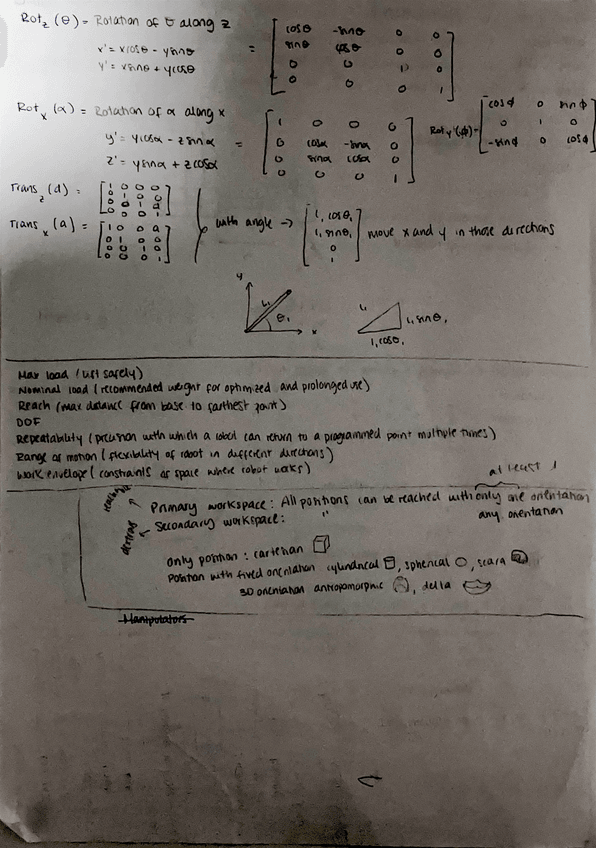 Rot_z (θ) = Rotation of θ along z
x' = xcosθ - ysinθ
y' = xsinθ + ycosθ
= [ cosθ -sinθ 0 0
sinθ cosθ 0 0
0 0 1 0
0 0 0 1 ]
Rot_x (α) = Rotation of α along x
y' = ycosα - zsinα
z' = ysinα + zcosα
= [ 1 0 0 0
0 cosα -sinα 0
0 sinα cosα 0
0 0 0 1 ]
Rot_y'(ϕ) = [ cosϕ 0 sinϕ
0 1 0
-sinϕ 0 cosϕ ]
Trans_z (d) = [ 1 0 0 0
0 1 0 0
0 0 1 d
0 0 0 1 ]
Trans_x (a) = [ 1 0 0 a
0 1 0 0
0 0 1 0
0 0 0 1 ]
with angle → [ l₁ cosθ₁
l₁ sinθ₁
0
1 ] move x and y in those directions
y
L₁
θ₁
x
L₁
l₁ sinθ₁
l₁ cosθ₁
Max load (lift safely)
Nominal load (recommended weight for optimized and prolonged use)
Reach (max distance from base to farthest point)
DOF
Repeatability (precision with which a robot can return to a programmed point multiple times)
Range of motion (flexibility of robot in different directions)
Work envelope (constraints of space where robot works)
at least 1
reachable
Primary workspace: All positions can be reached with only one orientation
dextrous
Secondary workspace: " any orientation
Only position: cartesian
Position with fixed orientation cylindrical, spherical, scara
3D orientation antropomorphic, delta
Manipulators